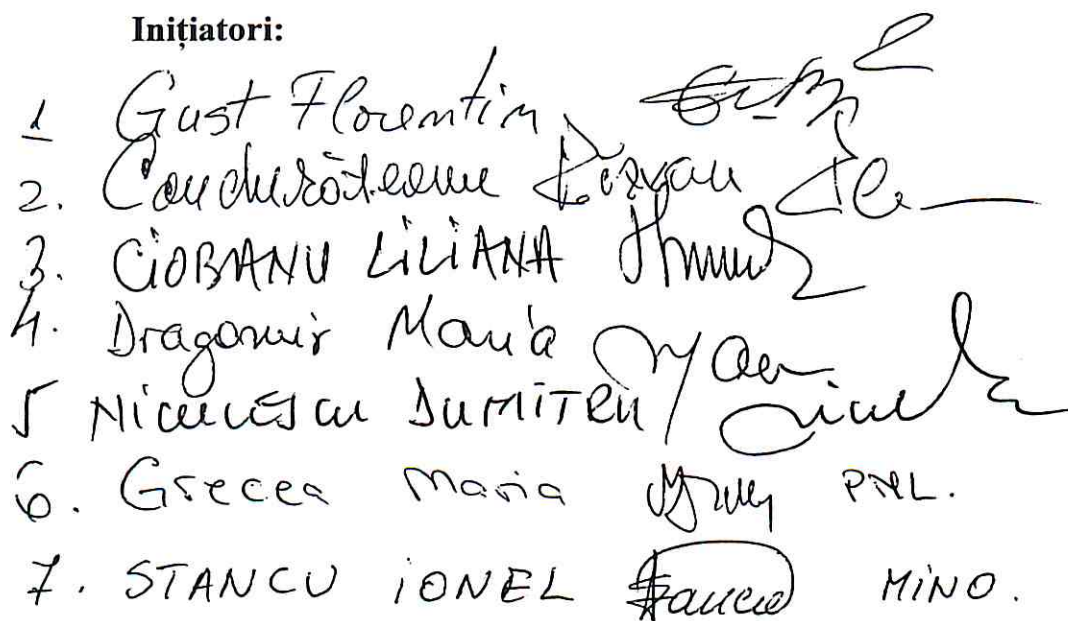 Inițiatori:
1 Gust Florentin
2. Condurățeanu Răzvan
3. CIOBANU LILIANA
4. Dragomir Maria
5 Niculescu DUMITRU
6. Grecea Maria PNL.
7. STANCU IONEL Stancu MINO.